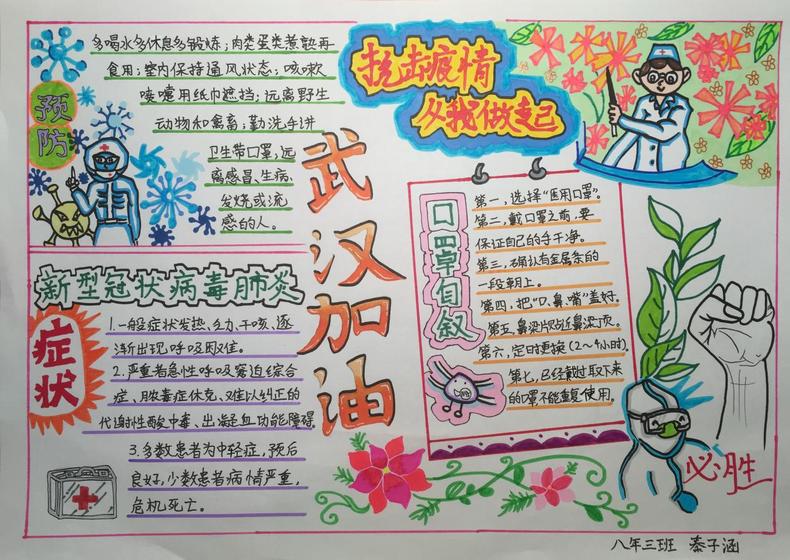 抗击疫情
从我做起
预防
多喝水多休息多锻炼；肉类蛋类煮熟再
食用；室内保持通风状态；咳嗽
喷嚏用纸巾遮挡；远离野生
动物和禽畜；勤洗手讲
卫生带口罩，远
离感冒、生病、
发烧或流
感的人。
武汉加油
新型冠状病毒肺炎
症状
1.一般症状发热、乏力、干咳、逐
渐出现呼吸困难。
2.严重者急性呼吸窘迫综合
症、脓毒症休克、难以纠正的
代谢性酸中毒、出凝血功能障碍
3.多数患者为中轻症，预后
良好，少数患者病情严重，
危机死亡。
口罩自叙
第一，选择“医用口罩”。
第二，戴口罩之前，要
保证自己的手干净。
第三，确认有金属条的
一段朝上。
第四，把“口、鼻、嘴”盖好。
第五，鼻梁片贴近鼻梁顶。
第六，定时更换(2～4小时)。
第七，已经戴过取下来
的口罩不能重复使用。
必胜
八年三班 秦子涵